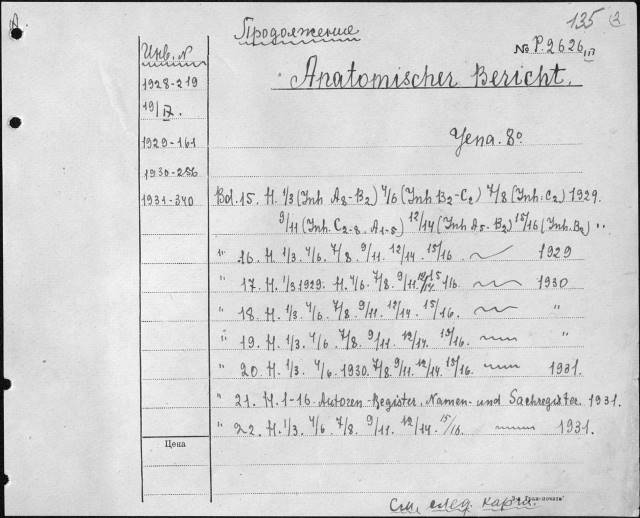 135
Продолжение
№ P.2626 III
Инв. N
Anatomischer Bericht.
1928-219
19/IX.
Yena. 8°
1929-161
1930-256
1931-340 Bd. 15. H. 1/3 (Inh A8-B2) 4/6 (Inh B2-C2) 7/8 (Inh: C2) 1929.
9/11 (Inh. C2-8. A1-5) 12/14 (Inh A5-B2) 15/16 (Inh. B2) "
" 16. H. 1/3. 4/6. 7/8. 9/11. 12/14. 15/16. 1929
" 17. H. 1/3 1929. H. 4/6. 7/8. 9/11. 12/14. 15/16. 1930
" 18. H. 1/3. 4/6. 7/8. 9/11. 12/14. 15/16. "
" 19. H. 1/3. 4/6. 7/8. 9/11. 12/14. 15/16. "
" 20. H. 1/3. 4/6. 1930. 7/8. 9/11. 12/14. 15/16. 1931.
" 21. H. 1-16. Autoren-Register, Namen- und Sachregister. 1931.
" 22. H. 1/3. 4/6. 7/8. 9/11. 12/14. 15/16. 1931.
Цена
См. след. карт.